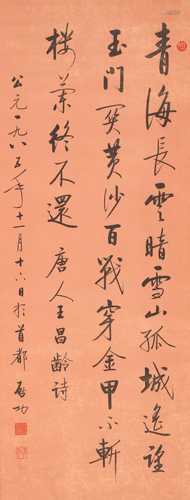 青海長雲暗雪山孤城遥望
玉門関黄沙百戰穿金甲不斬
樓蘭終不還 唐人王昌齡詩
公元一九八五年十一月十六日於首都 啟功